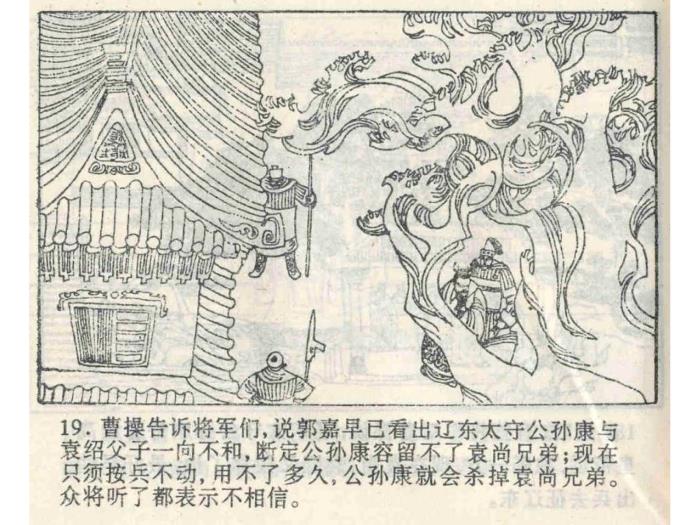 19. 曹操告诉将军们,说郭嘉早已看出辽东太守公孙康与
袁绍父子一向不和,断定公孙康容留不了袁尚兄弟;现在
只须按兵不动,用不了多久,公孙康就会杀掉袁尚兄弟。
众将听了都表示不相信。